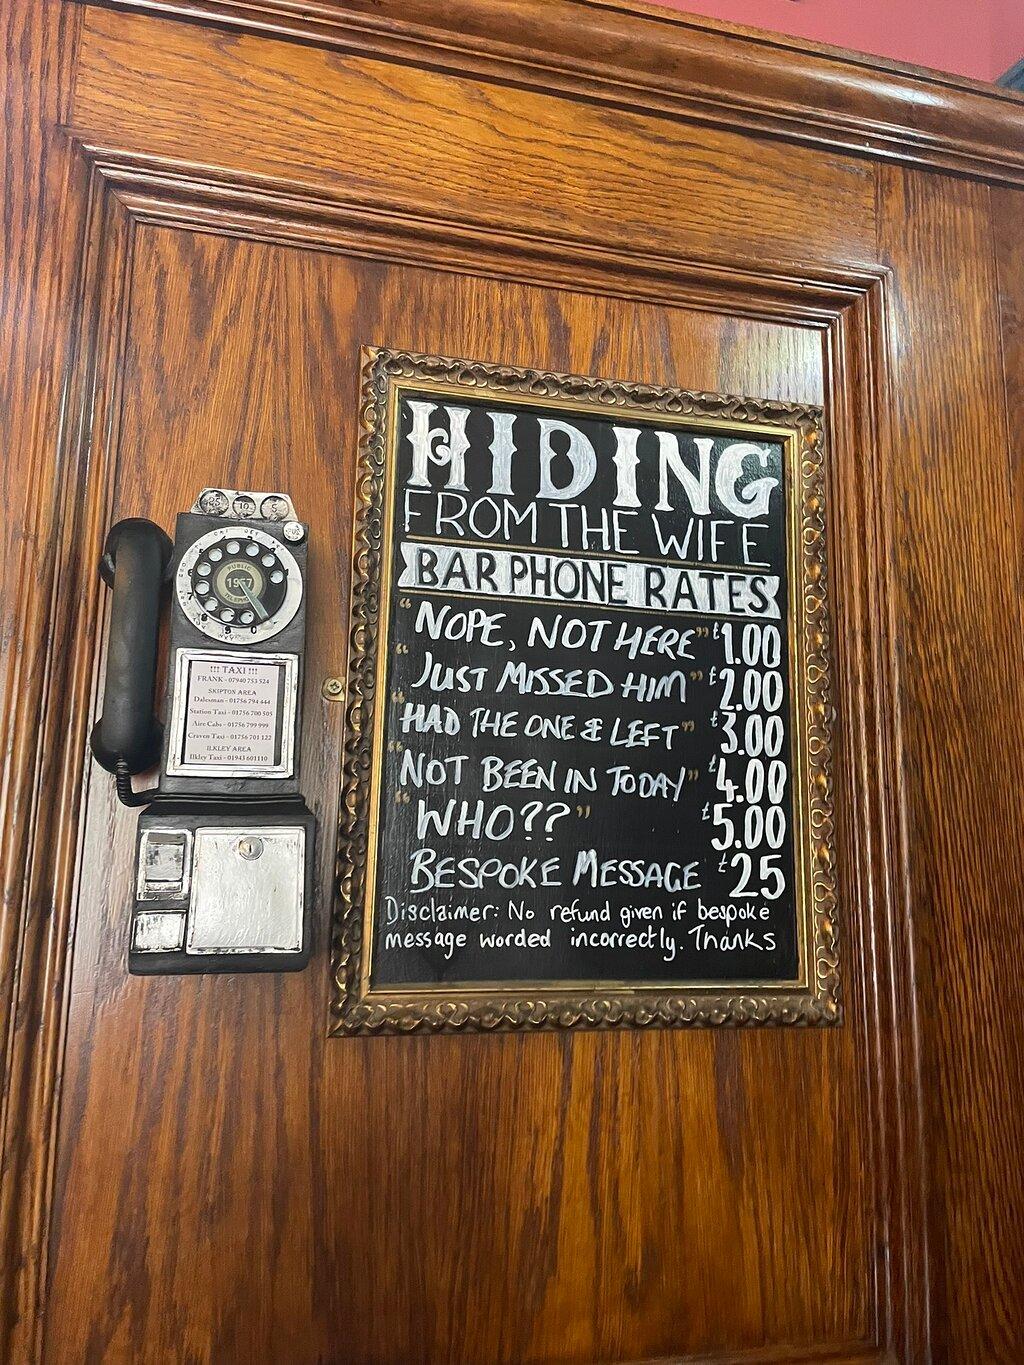 25 10 5
PUBLIC
1957
TELEPHONE
!!! TAXI !!!
FRANK - 07940 753 524
SKIPTON AREA
Dalesman - 01756 794 444
Station Taxi - 01756 700 505
Aire Cabs - 01756 799 999
Craven Taxi - 01756 701 122
ILKLEY AREA
Ilkley Taxi - 01943 601110
HIDING
FROM THE WIFE
BAR PHONE RATES
"NOPE, NOT HERE" £1.00
"JUST MISSED HIM" £2.00
"HAD THE ONE & LEFT" £3.00
"NOT BEEN IN TODAY" £4.00
"WHO??" £5.00
BESPOKE MESSAGE £25
Disclaimer: No refund given if bespoke
message worded incorrectly. Thanks